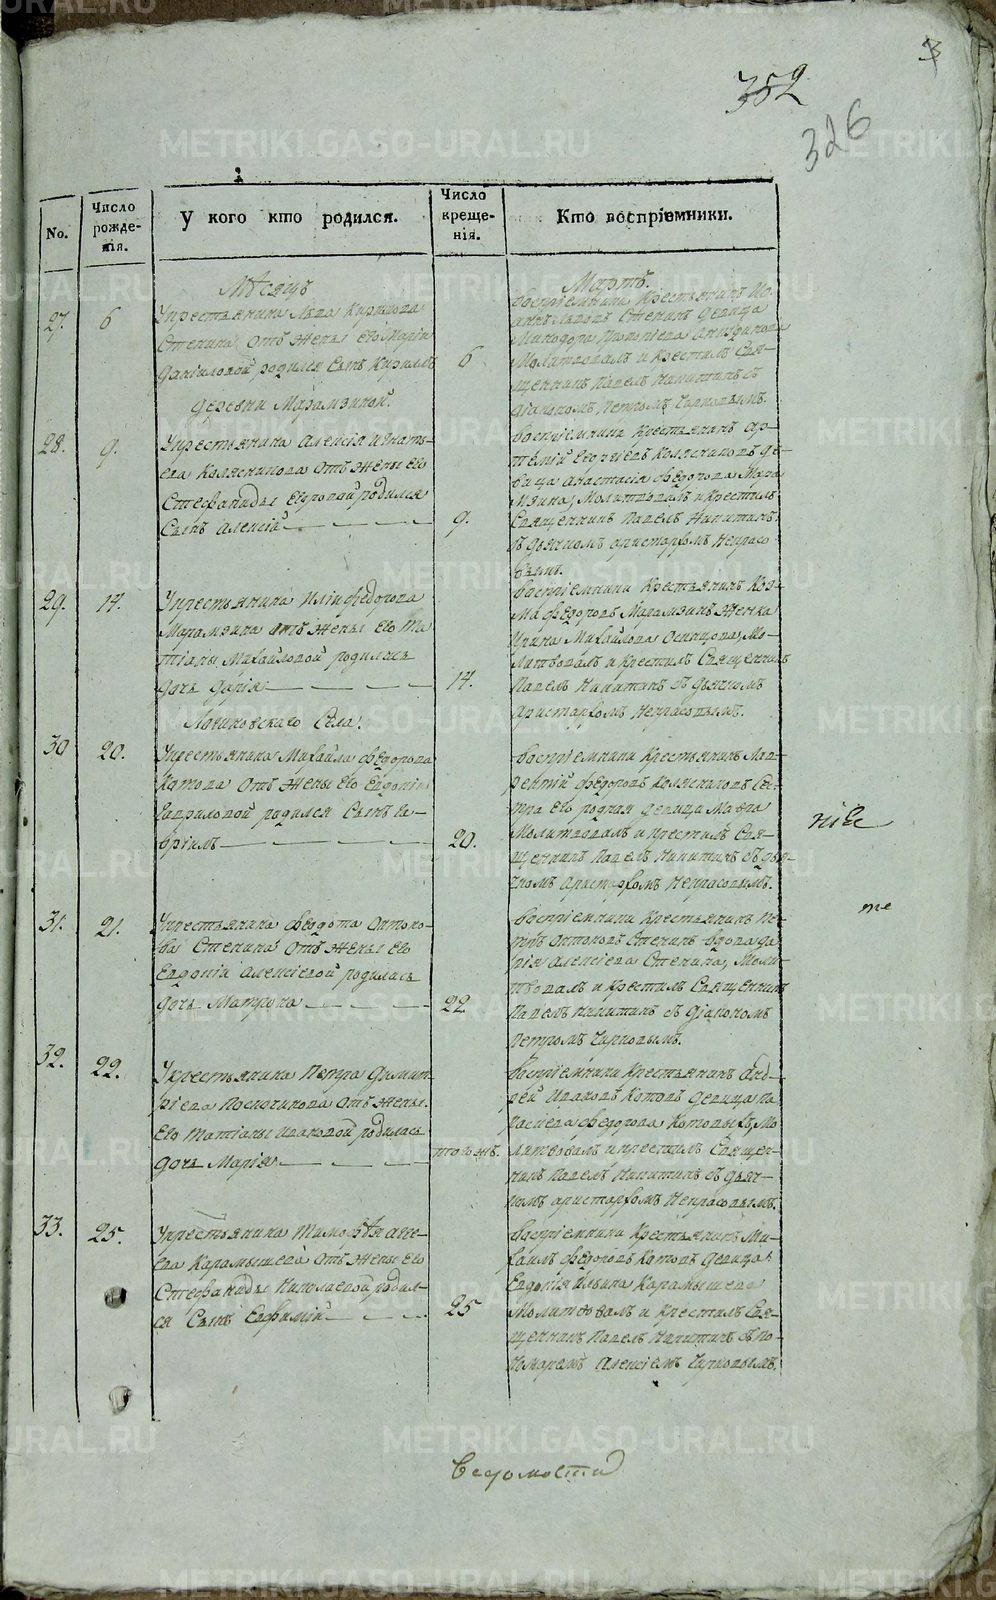 3
352
326
No.
Число рожде-нія.
У кого кто родился.
Число креще-нія.
Кто воспріемники.
Мѣсяцъ
Мартъ.
27.
6
Укрестьянина Льва Кирилова
Стенина отъ жены Его Маріи
Даніиловой родился Сынъ Кириллъ
6
воспріемники Крестьянинъ
Стенинъ девица
Молитвовалъ и Крестилъ Свя-
щенникъ Павелъ Никитинъ съ
діакономъ Петромъ Чирковымъ.
деревни Марамзиной.
28.
9.
Укрестьянина Алексія Игнать-
ева Коляскинова отъ жены Его
Стефаниды Егоровой родился
Сынъ Алексій
9.
воспріемники Крестьянинъ Ар-
темій Георгіевъ Коляскиновъ де-
вица Анастасія Федорова Мара
мзина, Молитвовалъ и Крестилъ
Священникъ Павелъ Никитинъ.
съ дьячкомъ Аристархомъ Некрасо
вымъ.
29.
14.
Укрестьянина Иліи Федорова
Марамзина отъ жены Его Та
тіаны Михайловой родилась
дочь Дарія
14.
воспріемники Крестьянинъ Коз-
ма Федоровъ Марамзинъ женка
Ирина Михайлова Осинцова, Мо-
литвовалъ и Крестилъ Священникъ
Павелъ Никитинъ съ дьячкомъ
Аристархомъ Некрасовымъ.
Логиновскаго Села.
30
20.
Укрестьянина Михаила Федорова
Котова отъ жены Его Евдокіи
Гавриловой родился Сынъ Га-
вріилъ
20.
воспріемники Крестьянинъ Лав-
рентій Федоровъ Коляскиновъ Се-
тра Его родная девица Мавра
Молитвовалъ и крестилъ Свя-
щенникъ Павелъ Никитинъ съ дья-
чкомъ Аристархомъ Некрасовымъ.
31.
21.
Укрестьянина Федота Антоно-
ва Стенина отъ жены Его
Евдокіи Алексіевой родилась
дочь Матрона
22
воспріемники Крестьянинъ
Антоновъ Стенинъ вдова Да-
рія Алексіева Стенина, Моли-
твовалъ и крестилъ Священникъ
Павелъ Никитинъ съ діакономъ
Петромъ Чирковымъ.
32.
22.
Укрестьянина Петра Димит-
ріева Поспочинова отъ жены
Его Татіаны Ивановой родилась
дочь Марія
тогожъ.
воспріемники Крестьянинъ Анд-
рей Ивановъ Котовъ девица Па
раскева Федорова Котовыхъ, Мо
литвовалъ и крестилъ Священ-
никъ Павелъ Никитинъ съ дьяч-
комъ Аристархомъ Некрасовымъ.
33.
25.
Укрестьянина Тимоѳѣя Агее-
ва Карамышева отъ жены Его
Стефаниды Николаевой родил-
ся Сынъ Евфимій
25
воспріемники Крестьянинъ Ми-
хаилъ Федоровъ Котовъ девица
Евдокія Ильина Карамышева
Молитвовалъ и Крестилъ Свя-
щенникъ Павелъ Никитинъ съ по-
номаремъ Алексіемъ Чирковымъ.
ніе
те
Ведомости
METRIKI.GASO-URAL.RU